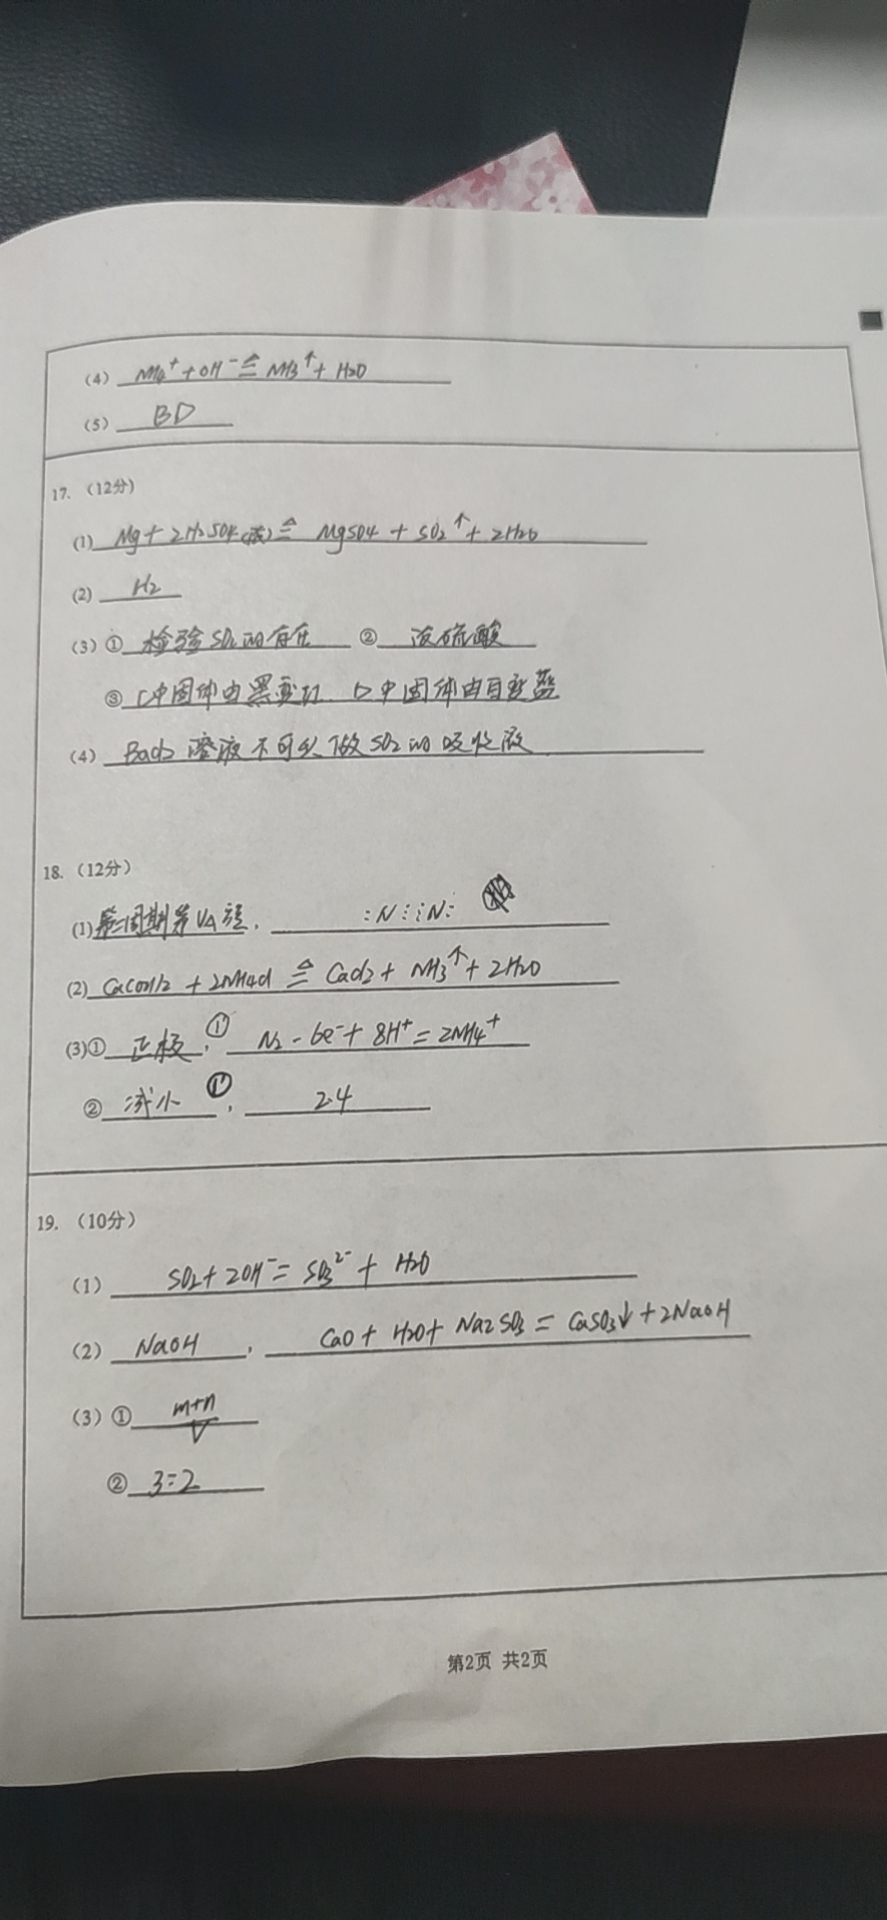 (4) NH4⁺+OH⁻≜NH3↑+H2O
(5) BD
17.（12分）
(1) Mg+2H2SO4(浓)≜MgSO4+SO2↑+2H2O
(2) H2
(3) ① 检验SO2的存在 ② 浓硫酸
③ C中固体由黑变红 D中固体由白变蓝
(4) BaCl2溶液不可以做SO2的吸收液
18.（12分）
(1) 第二周期第VA族, :N⋮⋮N:
(2) Ca(OH)2+2NH4Cl≜CaCl2+NH3↑+2H2O
(3)① 正极, ① N2-6e⁻+8H⁺=2NH4⁺
② 减小 ①, 2.4
19.（10分）
(1) SO2+2OH⁻=SO3²⁻+H2O
(2) NaOH, CaO+H2O+Na2SO3=CaSO3↓+2NaOH
(3) ① m+n/V
② 3:2
第2页 共2页